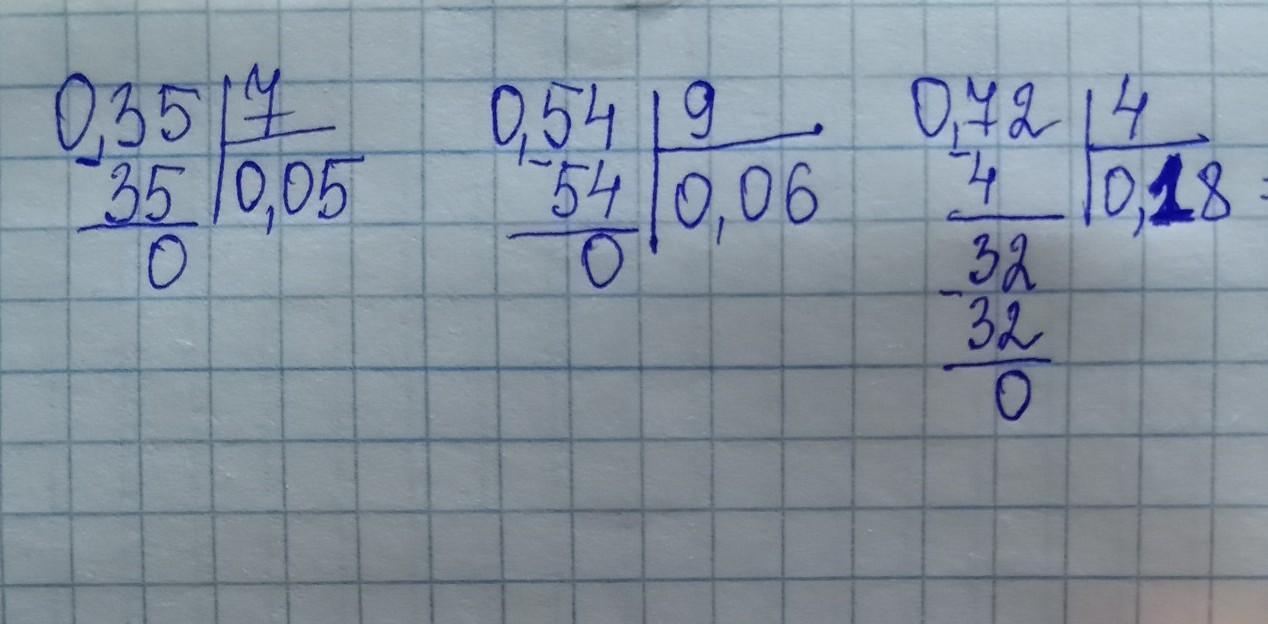 0,35 7 0,54 9 0,72 4
- 35 0,05 - 54 0,06 - 4 0,18 =
0 0 32
- 32
0